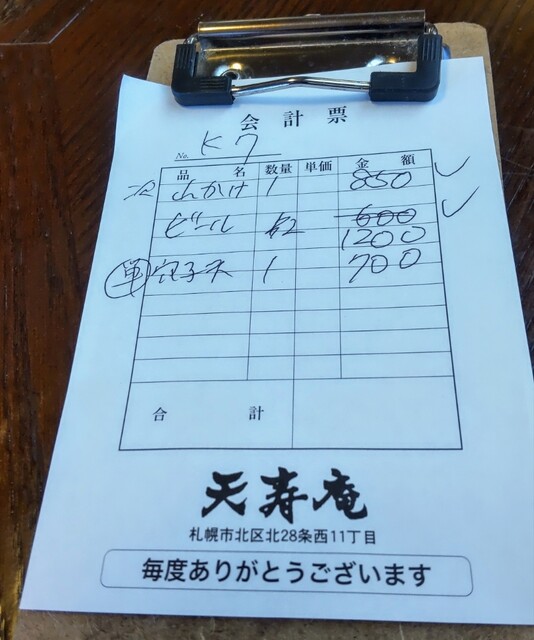 会計票
No. K7
品名 数量 単価 金額
かけ 1 850
ビール 2 600
1200
単 1 700
合計
天寿庵
札幌市北区北28条西11丁目
毎度ありがとうございます